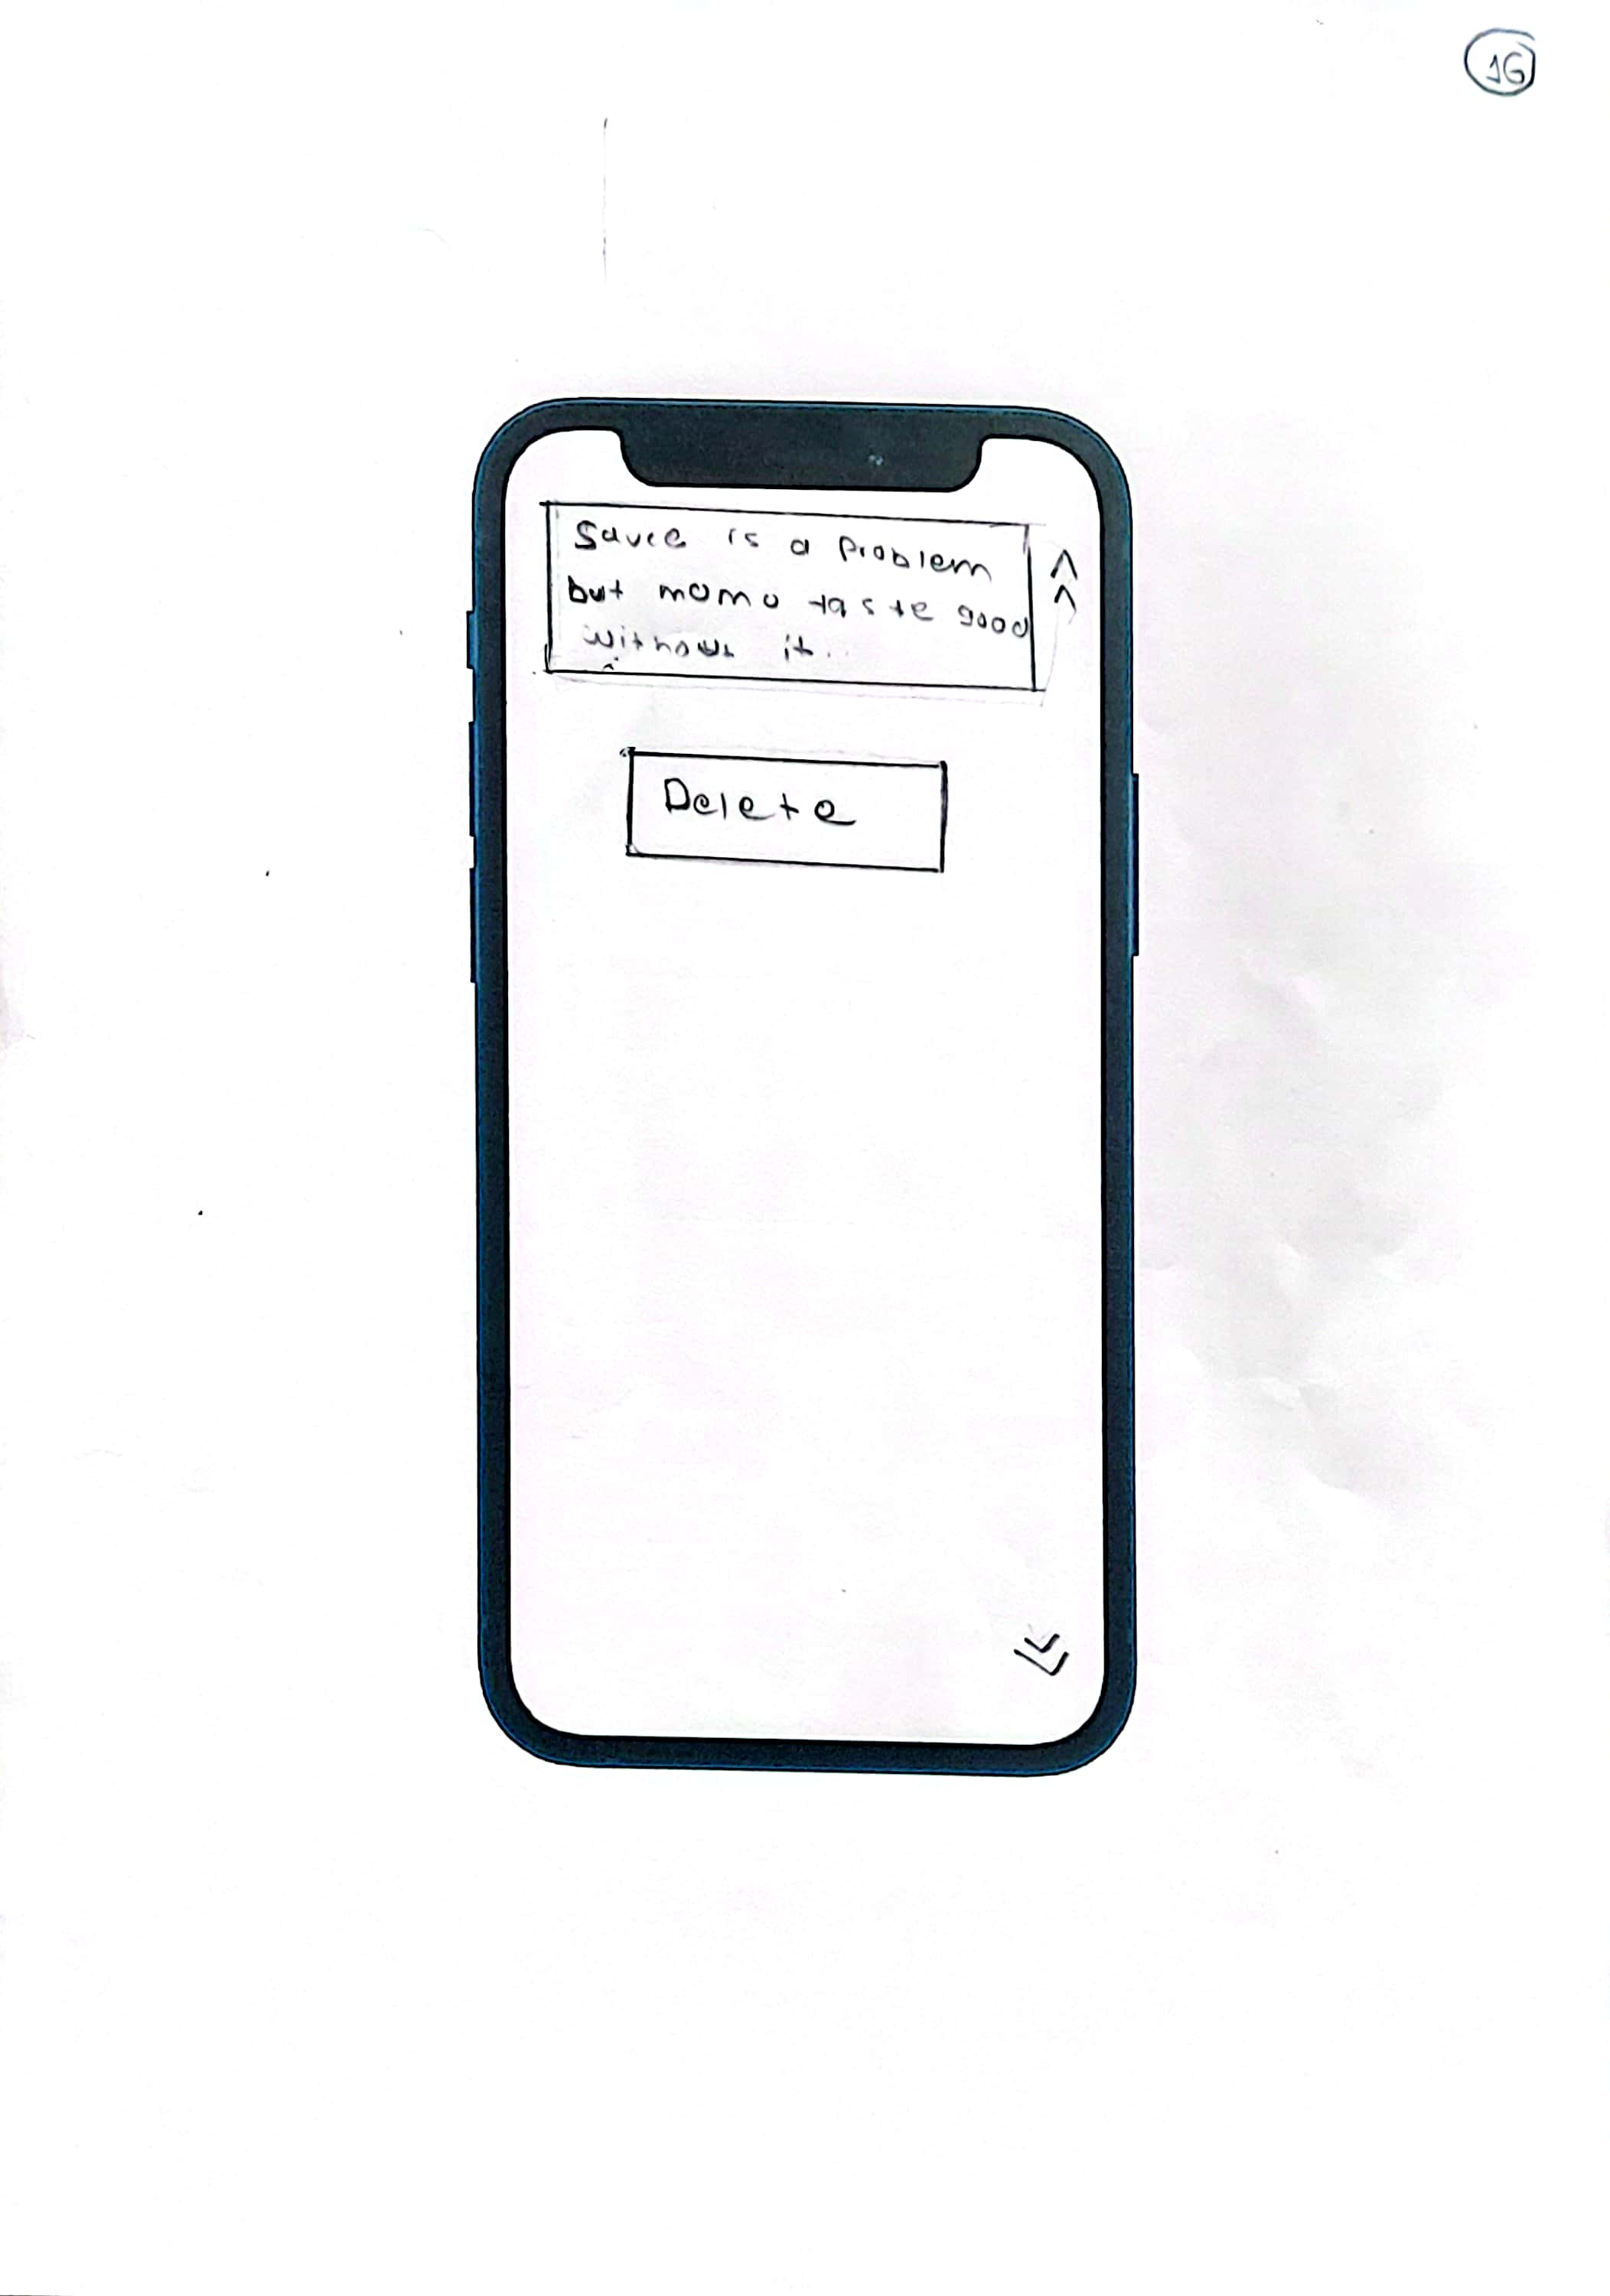 16
Sauce is a problem
but momo taste good
without it..
Delete